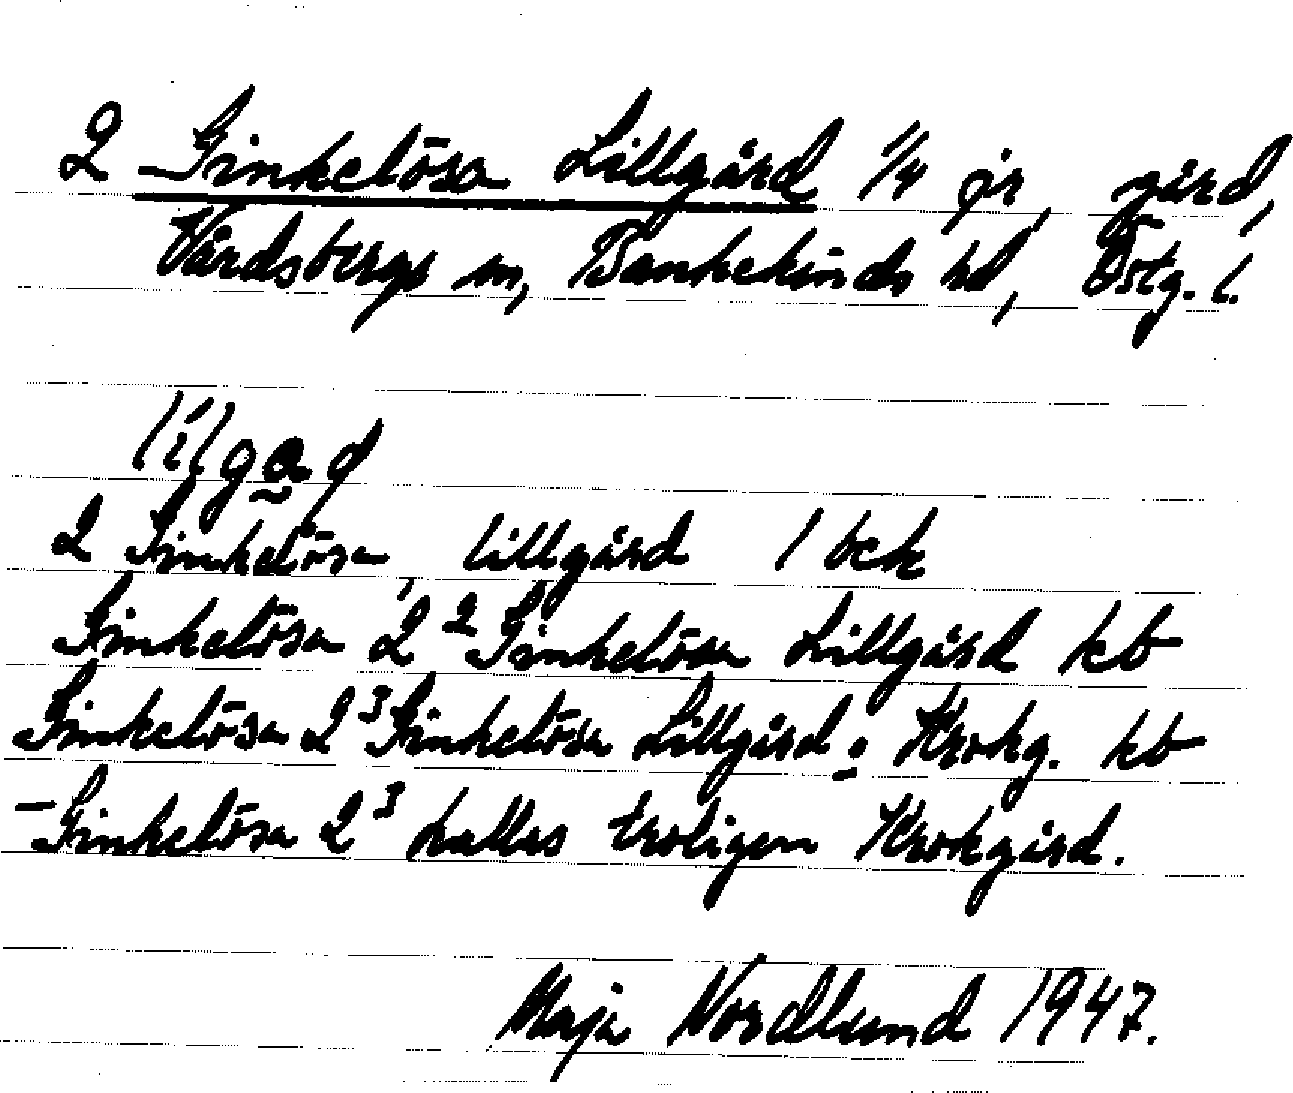 2 Ginkelösa Lillgård 1/4 jr, gård,
Vårdsbergs sn, Bankekinds hd, Östg. l.
lilgaḍ
2 Ginkelösa, lillgård 1 bek
Ginkelösa 2² Ginkelösa Lillgård kb
Ginkelösa 2³ Ginkelösa Lillgård: Krokg. kb
- Ginkelösa 2³ kallas troligen Krokgård.
Maja Nordlund 1947.